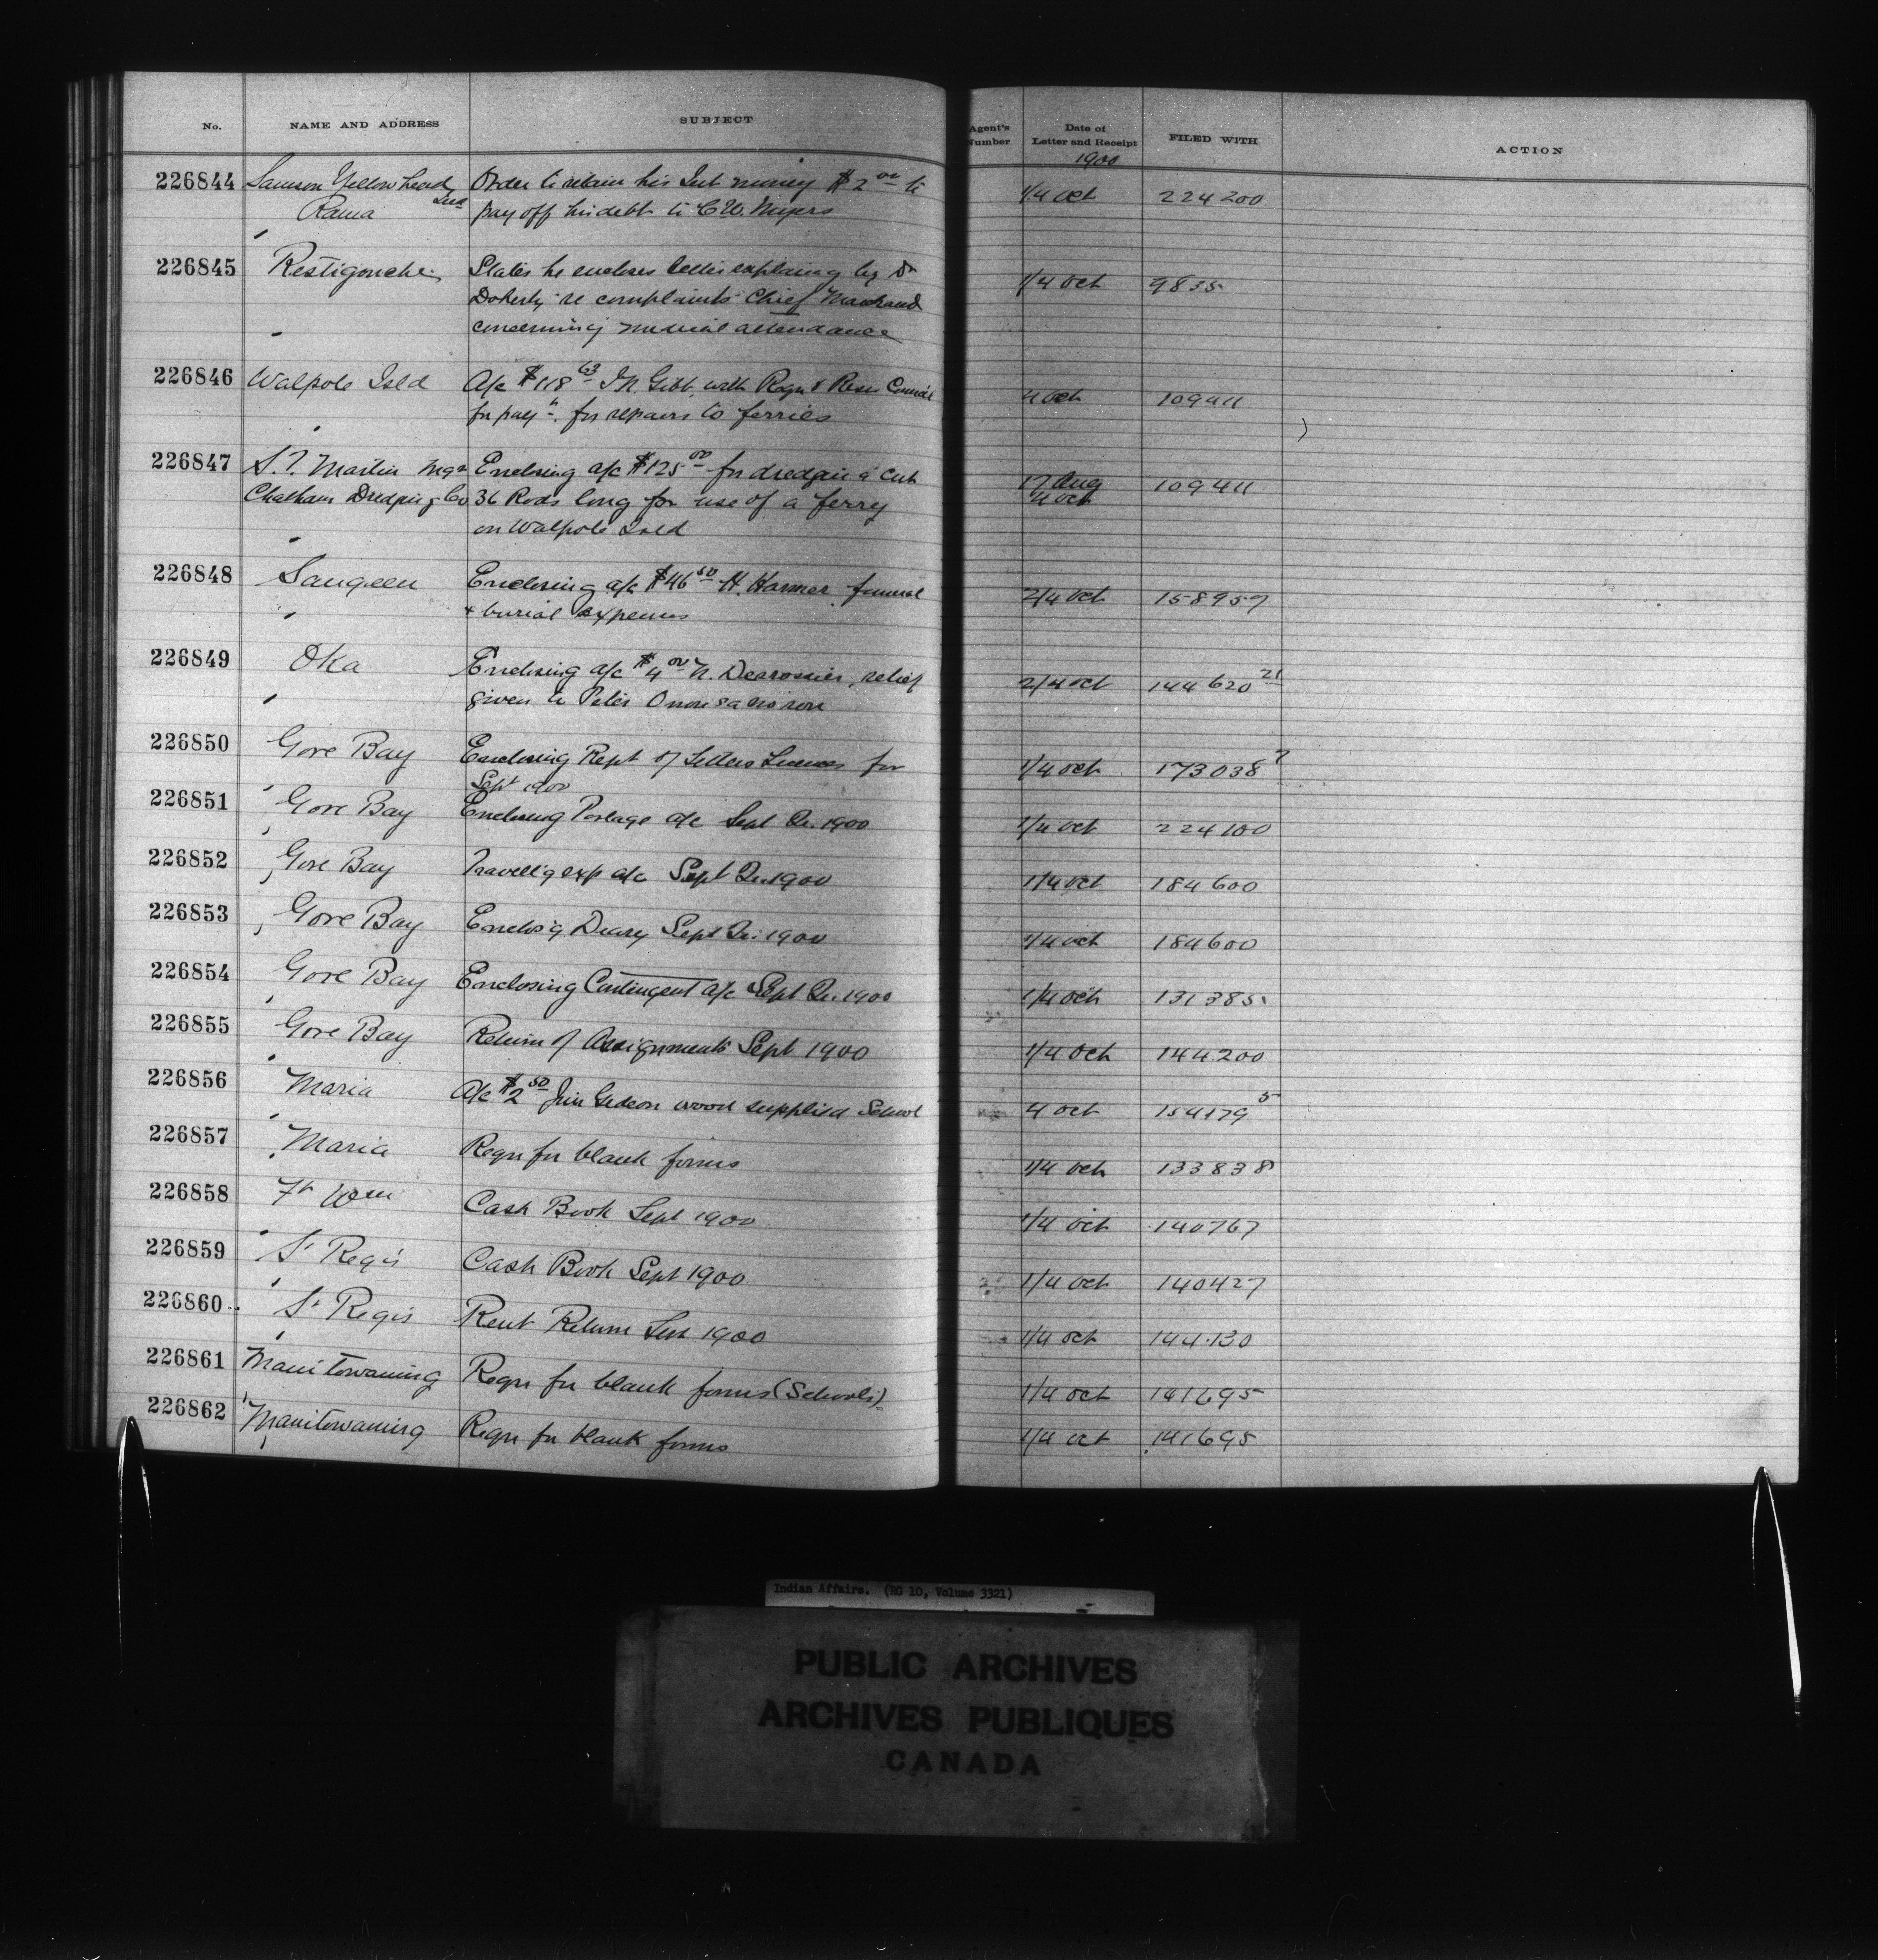 No. NAME AND ADDRESS SUBJECT Agent's Number Date of Letter and Receipt FILED WITH ACTION
1900
226844 Samson Yellowhead, Order to retain his Int money $2 00 to 1/4 Oct 224200
Rama Ind pay off his debt to C.W. Myers
226845 Restigouche States he encloses letter explaining by Dr 1/4 Oct 9835
Doherty re complaints Chief Marchand
concerning medical attendance
226846 Walpole Isld A/c $118 63 Gibb, with Requ & Resn Council 4 Oct 109411
for paymt. for repairs to ferries
226847 S.T. Martin Mgr Enclosing a/c $125 00 for dredging a cut 17 Aug 109411
Chatham Dredging Co 36 Rods long for use of a ferry 4 Oct
on Walpole Isld
226848 Saugeen Enclosing a/c $46 50 H. Harmer funeral 2/4 Oct 158957
& burial expenses
226849 Oka Enclosing a/c $4 00 N. Desrossier, relief 2/4 Oct 144620 21
given to Peter
226850 Gore Bay Enclosing Rept of Settlers Licenses for 1/4 Oct 173038 7
Sept 1900
226851 Gore Bay Enclosing Postage a/c Sept Qr. 1900 1/4 Oct 224100
226852 Gore Bay Travell'g exp a/c Sept Qr. 1900 1/4 Oct 184600
226853 Gore Bay Enclos'g Diary Sept Qr. 1900 1/4 Oct 184600
226854 Gore Bay Enclosing Contingent a/c Sept Qr. 1900 1/4 Oct 131385
226855 Gore Bay Return of Assignments Sept 1900 1/4 Oct 144200
226856 Maria A/c $2 50 Gedeon wood supplied School 4 Oct 154179 5
226857 Maria Requ for blank forms 1/4 Oct 133838
226858 Ft Wm Cash Book Sept 1900 1/4 Oct 140767
226859 St Regis Cash Book Sept 1900 1/4 Oct 140427
226860 St Regis Rent Return Sept 1900 1/4 Oct 144130
226861 Manitowaning Requ for blank forms (Schools) 1/4 Oct 141695
226862 Manitowaning Requ for blank forms 1/4 Oct 141695
Indian Affairs. (RG 10, Volume 3321)
PUBLIC ARCHIVES
ARCHIVES PUBLIQUES
CANADA